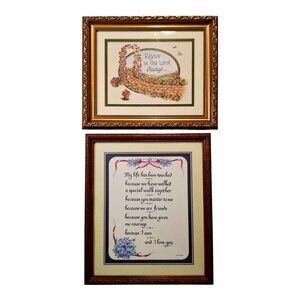 Rejoice
in the Lord
Always!
My life has been touched
because we have walked
a special walk together
because you matter to me
because we are friends
because you have given
me courage
because I care
and I love you.